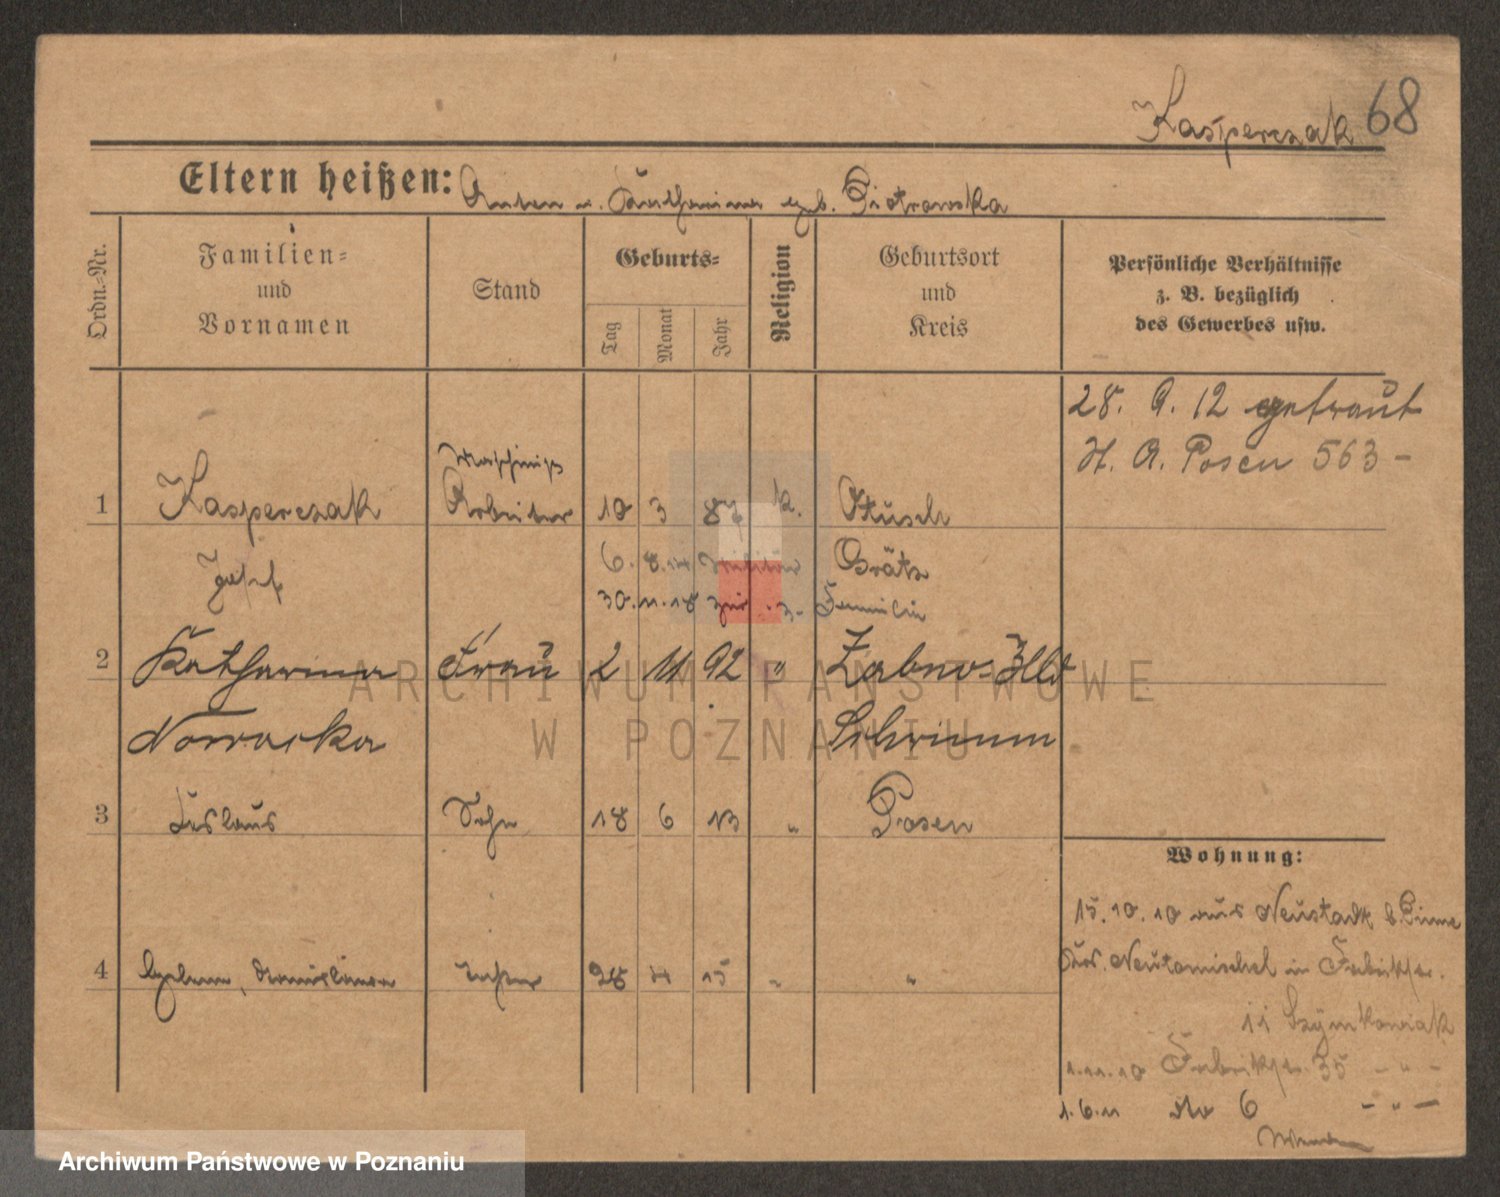 Kasperczak 68
Eltern heißen: Anton u. Katharina geb. Piotrowska
Ordn.-Nr.
Familien-
und
Vornamen
Stand
Geburts-
Tag
Monat
Jahr
Religion
Geburtsort
und
Kreis
Persönliche Verhältnisse
z. B. bezüglich
des Gewerbes usw.
28. 9. 12 getraut
H. A. Posen 563 -
1 Kasperczak Arbeiter 10 3 87 k. Otusch
Josef 6. 8. 14 Militär Grätz
30. 11. 18 zur Familie
2 Katharina Frau 2 11 92 " Zabno-Hld
Nowacka Schrimm
3 Sohn 18 6 13 " Posen
4 Tochter 28 4 15 " "
Wohnung:
15. 10. 10 aus Neustadt b. Pinne
Neutomischel in Fabrikstr.
11 Szymkowiak
1. 11. 10 Fabrikstr. 35 - " -
1. 6. 11 dto 6 - " -
ARCHIWUM PAŃSTWOWE
W POZNANIU
Archiwum Państwowe w Poznaniu